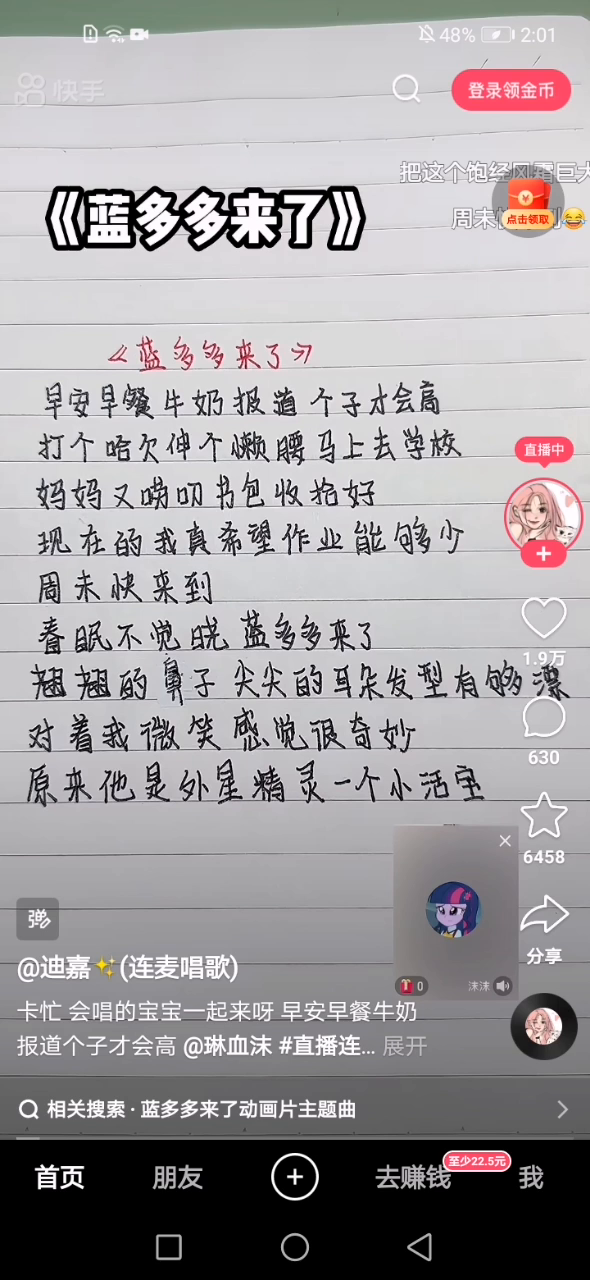 48% 2:01
快手
登录领金币
把这个饱经风霜巨大
周末快
点击领取
《蓝多多来了》
《蓝多多来了》
早安早餐牛奶报道 个子才会高
打个哈欠伸个懒腰马上去学校
妈妈又唠叨书包收拾好
现在的我真希望作业能够少
周末快来到
春眠不觉晓 蓝多多来了
翘翘的鼻子 尖尖的耳朵发型有够漂
对着我微笑感觉很奇妙
原来他是外星精灵一个小活宝
直播中
1.9万
630
6458
分享
0
沫沫
弹
@迪嘉✨(连麦唱歌)
卡忙 会唱的宝宝一起来呀 早安早餐牛奶
报道个子才会高 @琳血沫 #直播连... 展开
相关搜索 · 蓝多多来了动画片主题曲
首页
朋友
去赚钱
至少22.5元
我